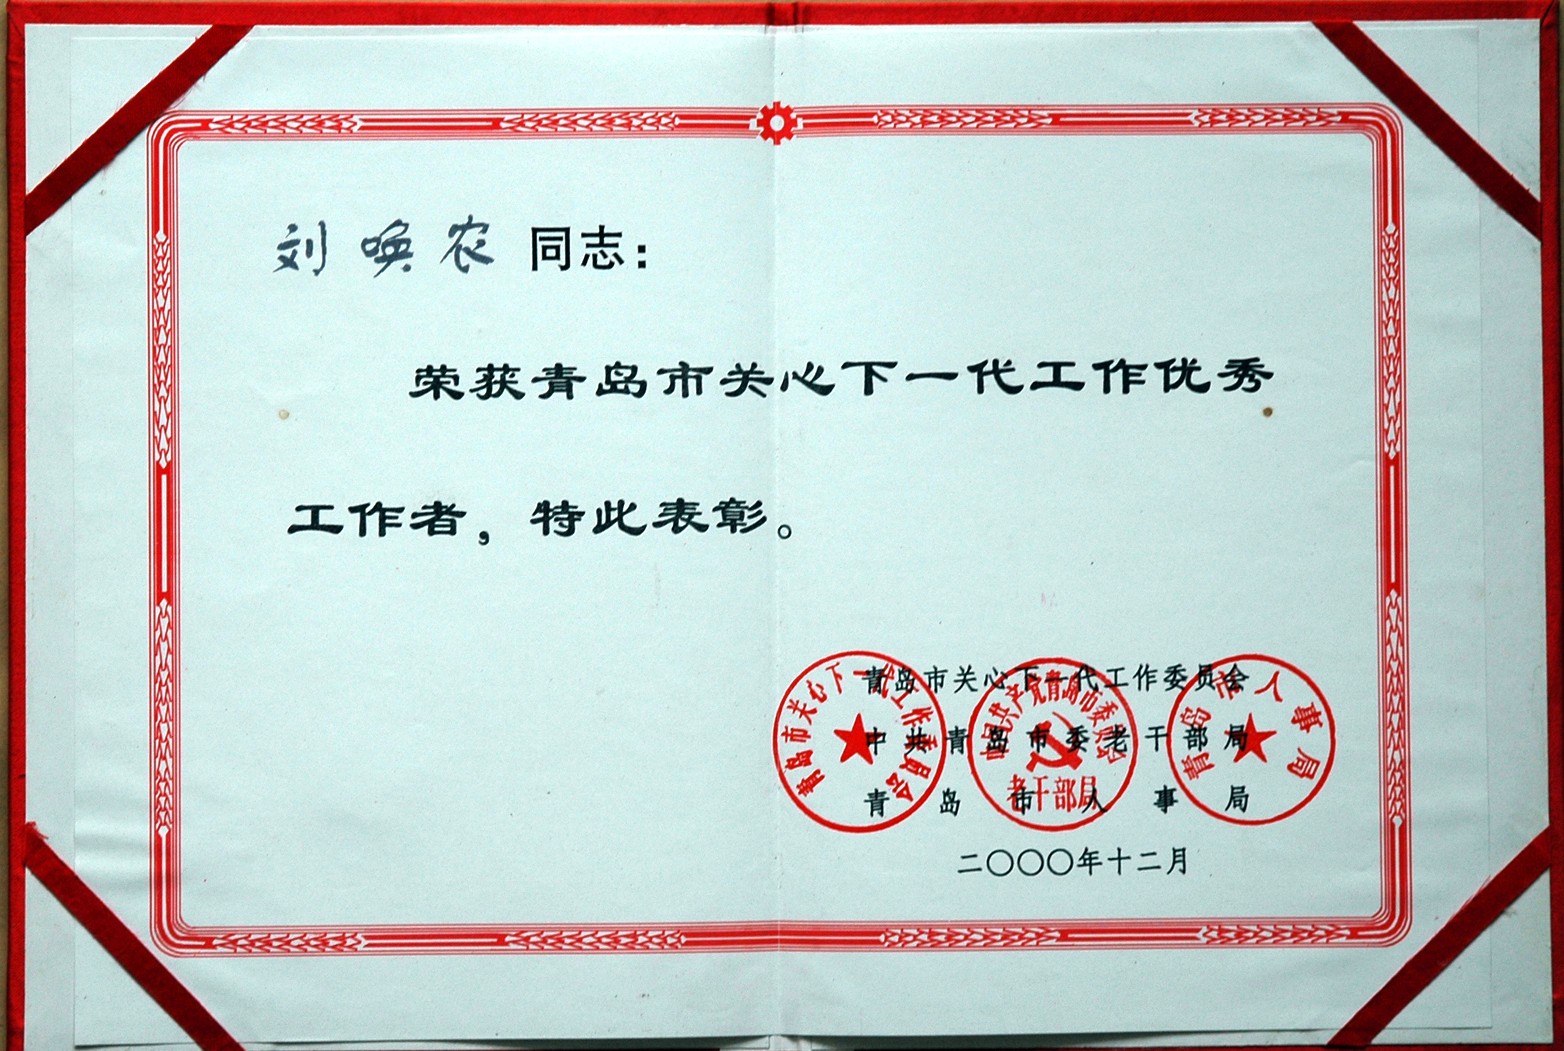 刘唤农同志：
荣获青岛市关心下一代工作优秀
工作者，特此表彰。
青岛市关心下一代工作委员会
中共青岛市委老干部局
青岛市人事局
二〇〇〇年十二月
青岛市关心下一代工作委员会
中国共产党青岛市委员会
老干部局
青岛市人事局